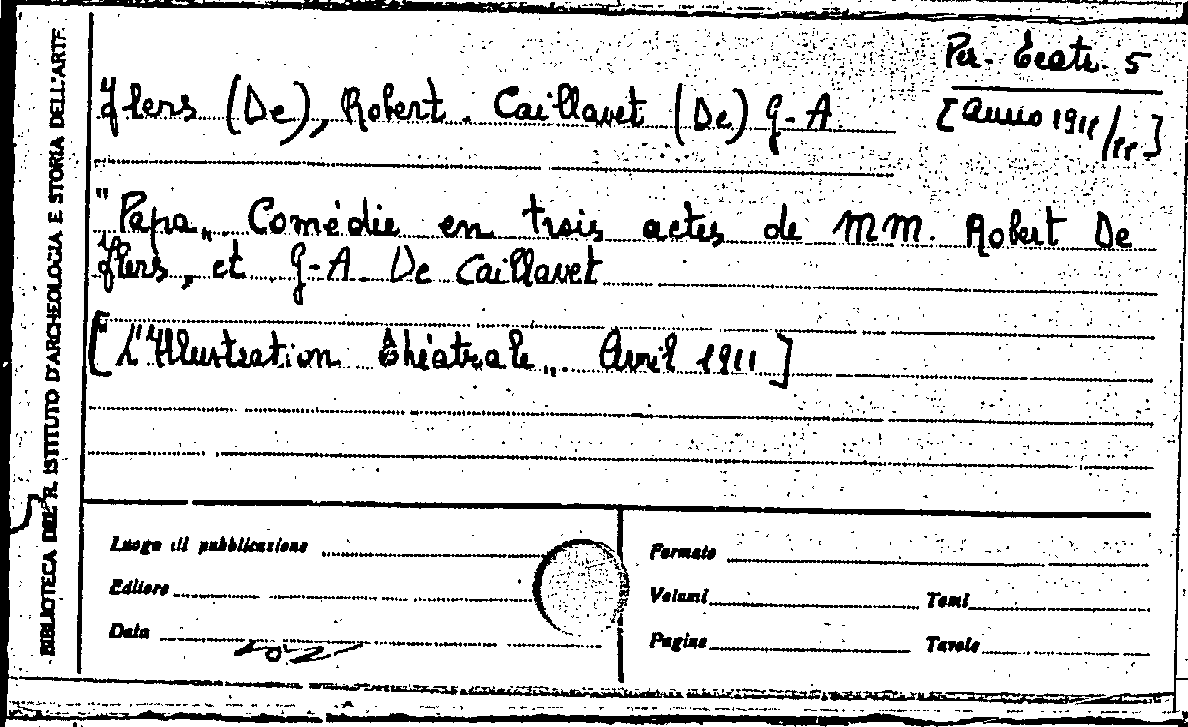 Per. Teatr. 5
Flers (De), Robert. Caillavet (De) G-A
[Anno 1911/II]
"Papa„ Comédie en trois actes de MM. Robert De
Flers, et G-A. De Caillavet
["L'Illustration Théatrale„. Avril 1911]
BIBLIOTECA DEL R. ISTITUTO D'ARCHEOLOGIA E STORIA DELL'ARTE
Luogo di pubblicazione
Editore
Data
Formato
Volumi Tomi
Pagine Tavole